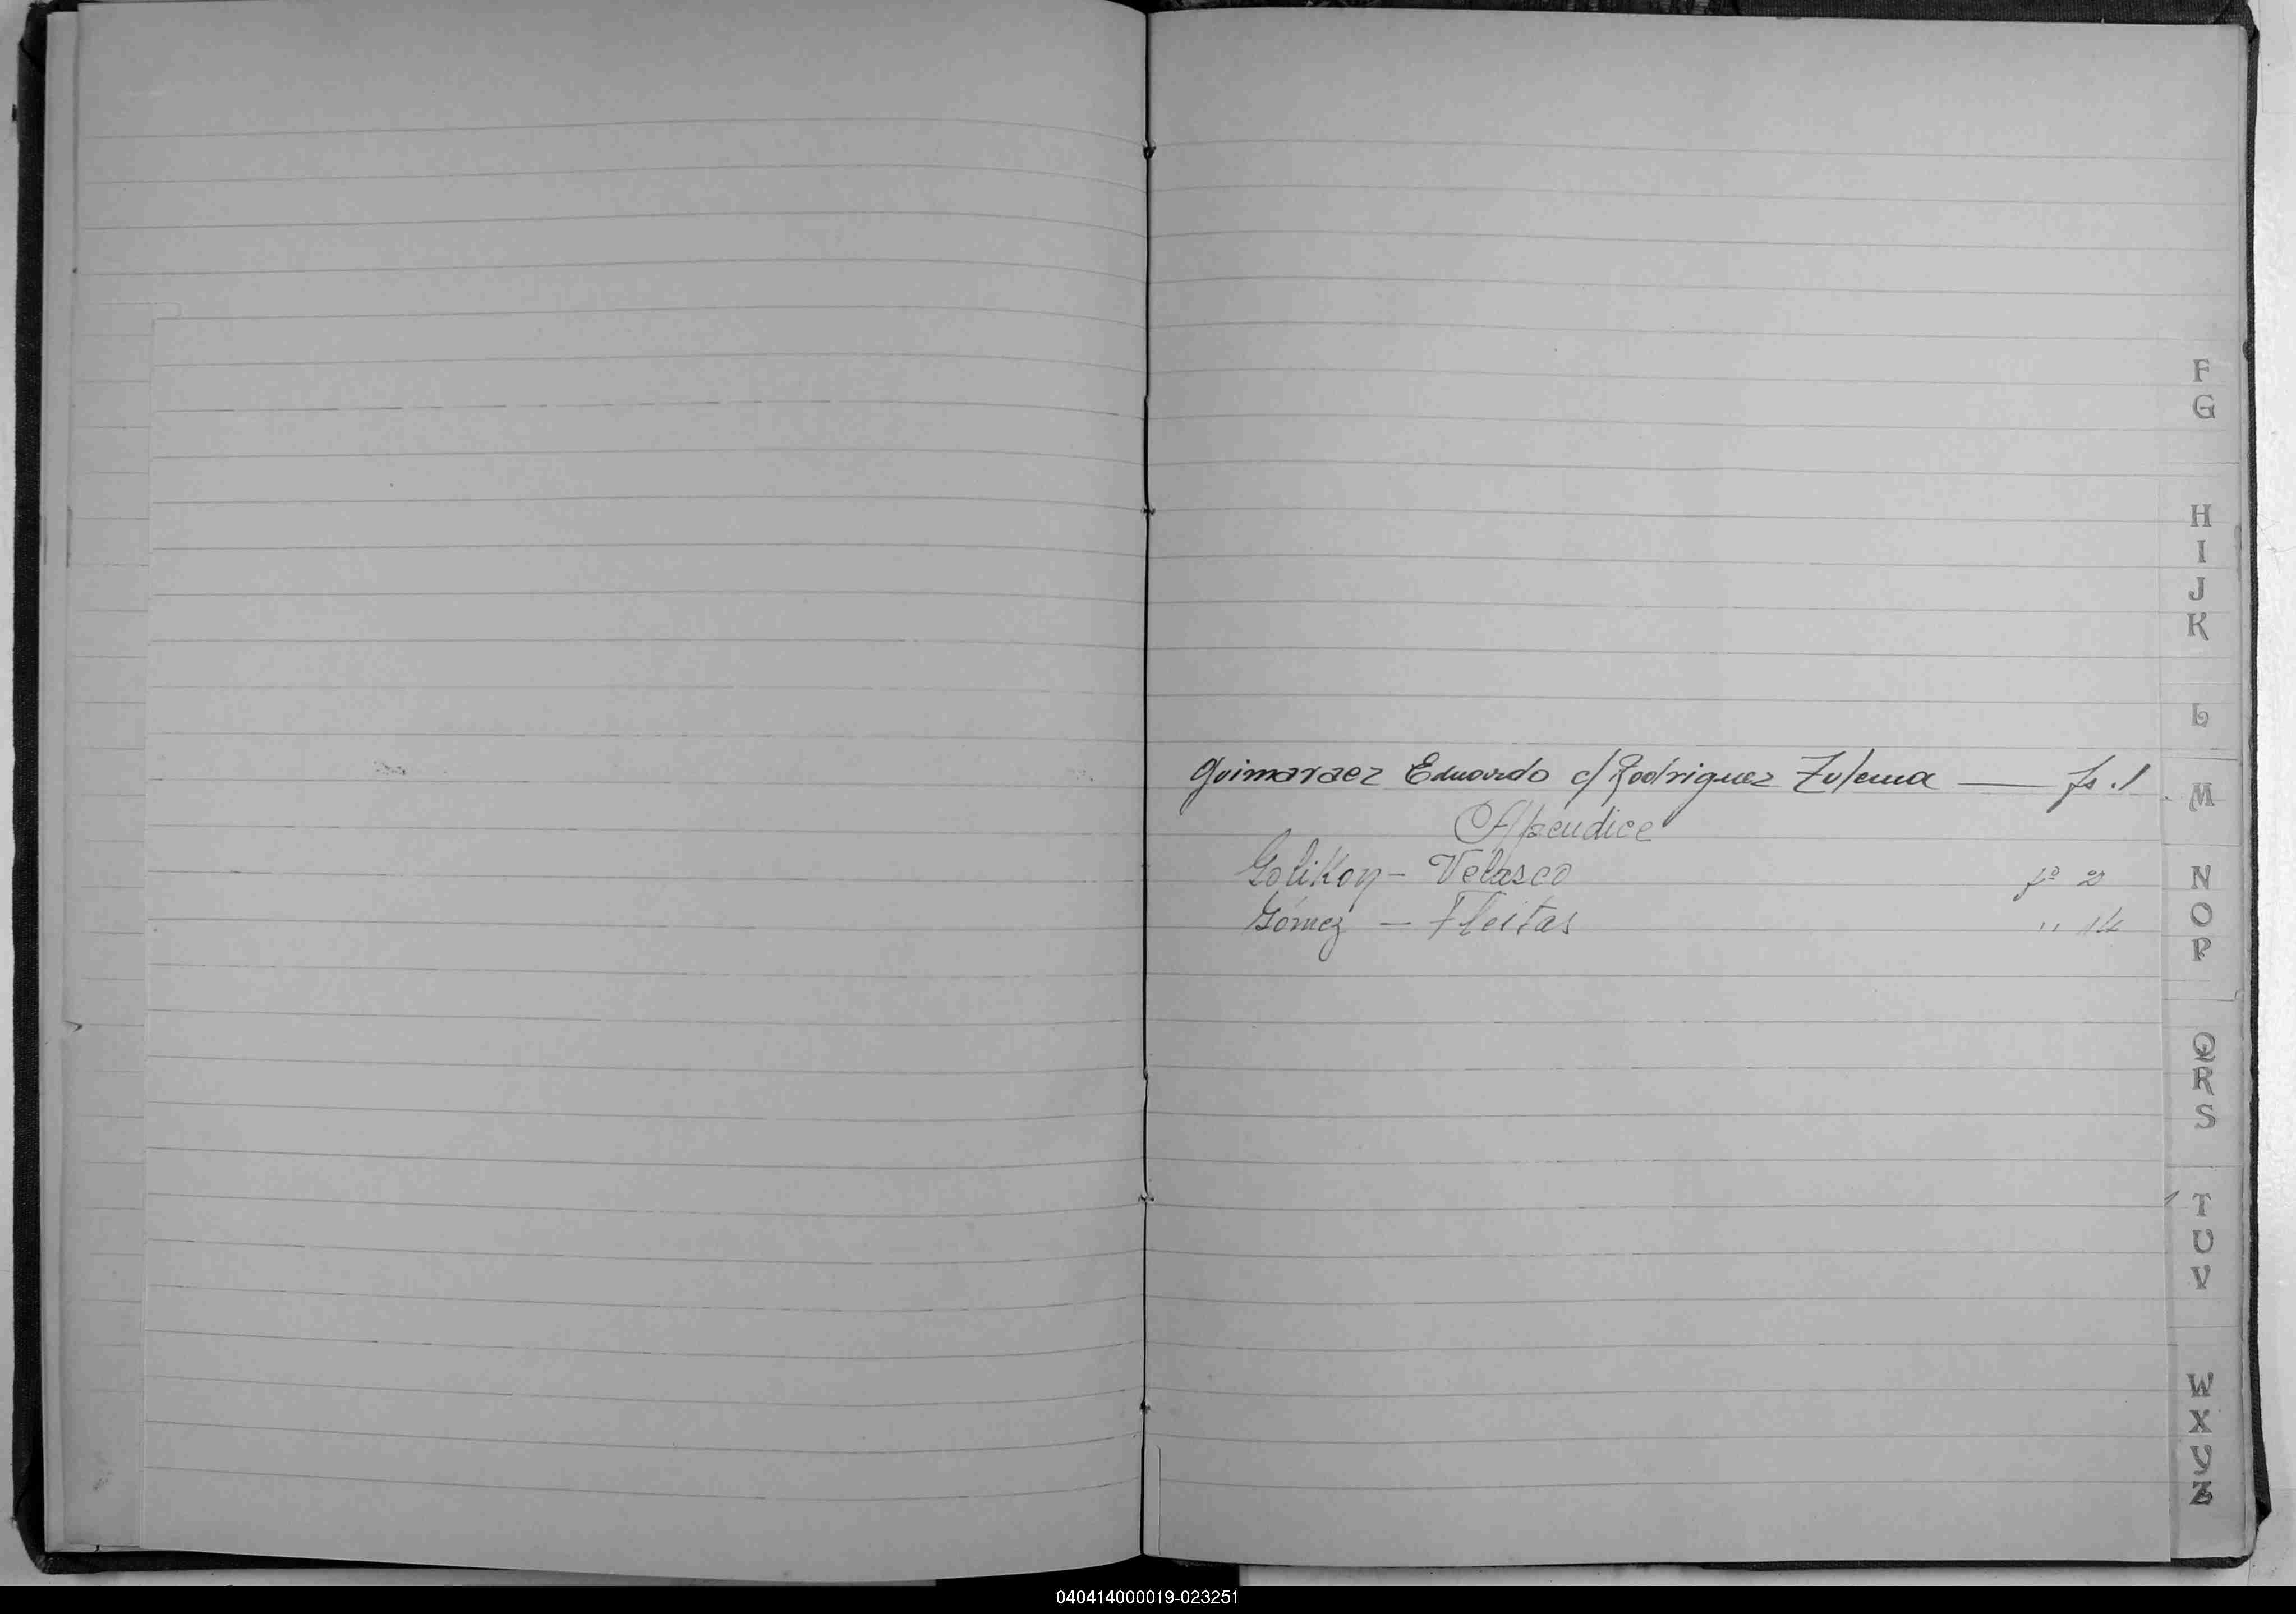 F
G
H
I
J
K
L
Guimaraez Eduardo c/ Rodriguez Zulema — fs. 1
M
Apendice
Golikoy - Velasco fº 2
N
Gómez - Fleitas " 14
O
P
Q
R
S
T
U
V
W
X
Y
Z
040414000019-023251